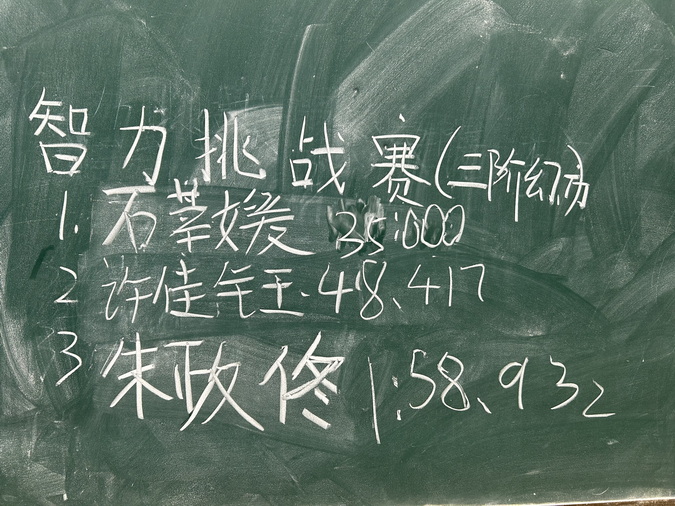 智力挑战赛(三阶幻方)
1. 石莘媛 35:000
2 许佳钰.48.417
3 朱政佟 1:58.932